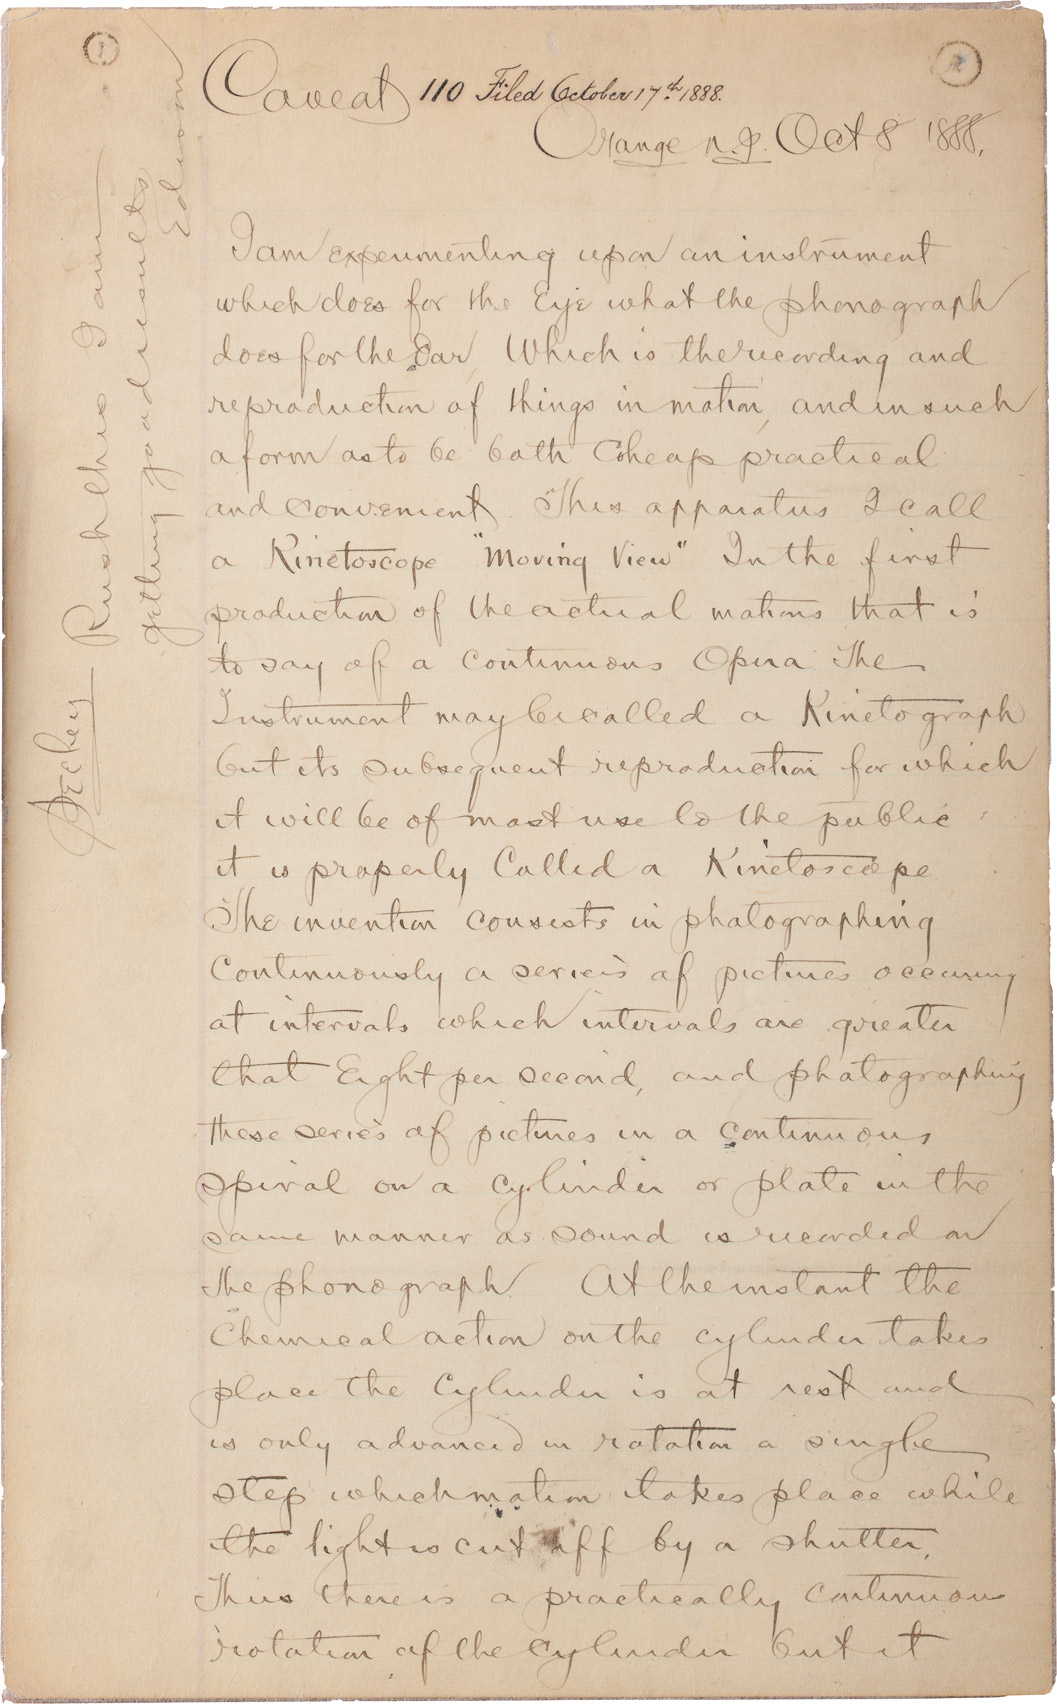 Caveat 110 Filed October 17th 1888.
Orange N.J. Oct 8 1888.
I am experimenting upon an instrument
which does for the Eye what the phonograph
does for the Ear, Which is the recording and
reproduction of things in motion, and in such
a form as to be both Cheap practical
and convenient. This apparatus I call
a Kinetoscope "Moving View" In the first
production of the actual motions that is
to say of a continuous Opera The
Instrument may be called a Kinetograph
but its subsequent reproduction for which
it will be of most use to the public
it is properly Called a Kinetoscope
The invention consists in photographing
Continuously a series of pictures occuring
at intervals which intervals are greater
that Eight per second, and photographing
these series of pictures in a continuous
spiral on a cylinder or plate in the
same manner as sound is recorded on
the phonograph At the instant the
Chemical action on the cylinder takes
place the Cylinder is at rest and
is only advanced in rotation a single
step which motion takes place while
the light is cut off by a shutter.
Thus there is a practically continuous
rotation of the cylinder but it
Rush this I am
getting good results
Edison
1